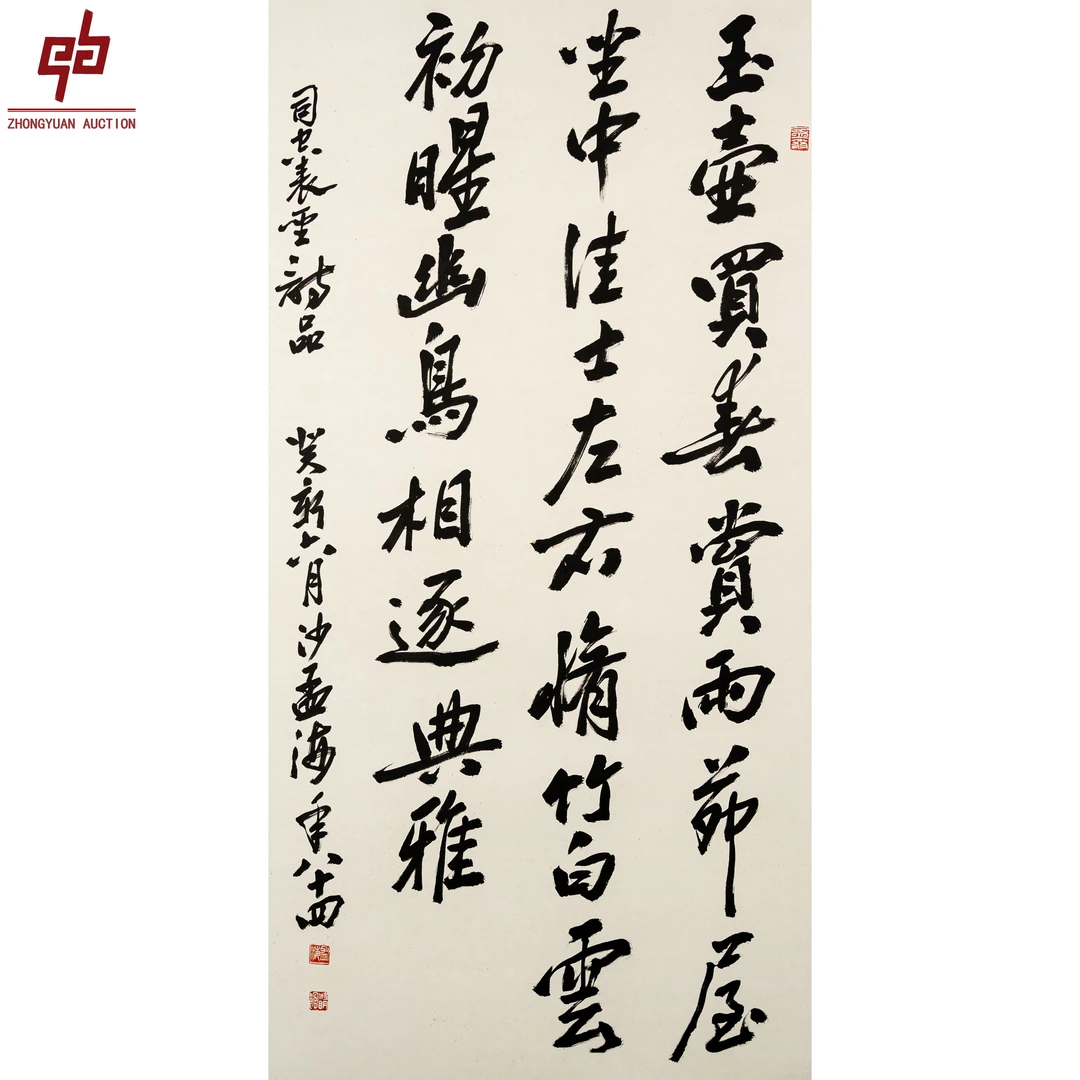 ZHONGYUAN AUCTION
玉壺買春賞雨茆屋
坐中佳士左右脩竹白雲
初暒幽鳥相逐典雅
司空表聖詩品 癸亥六月沙孟海年八十四